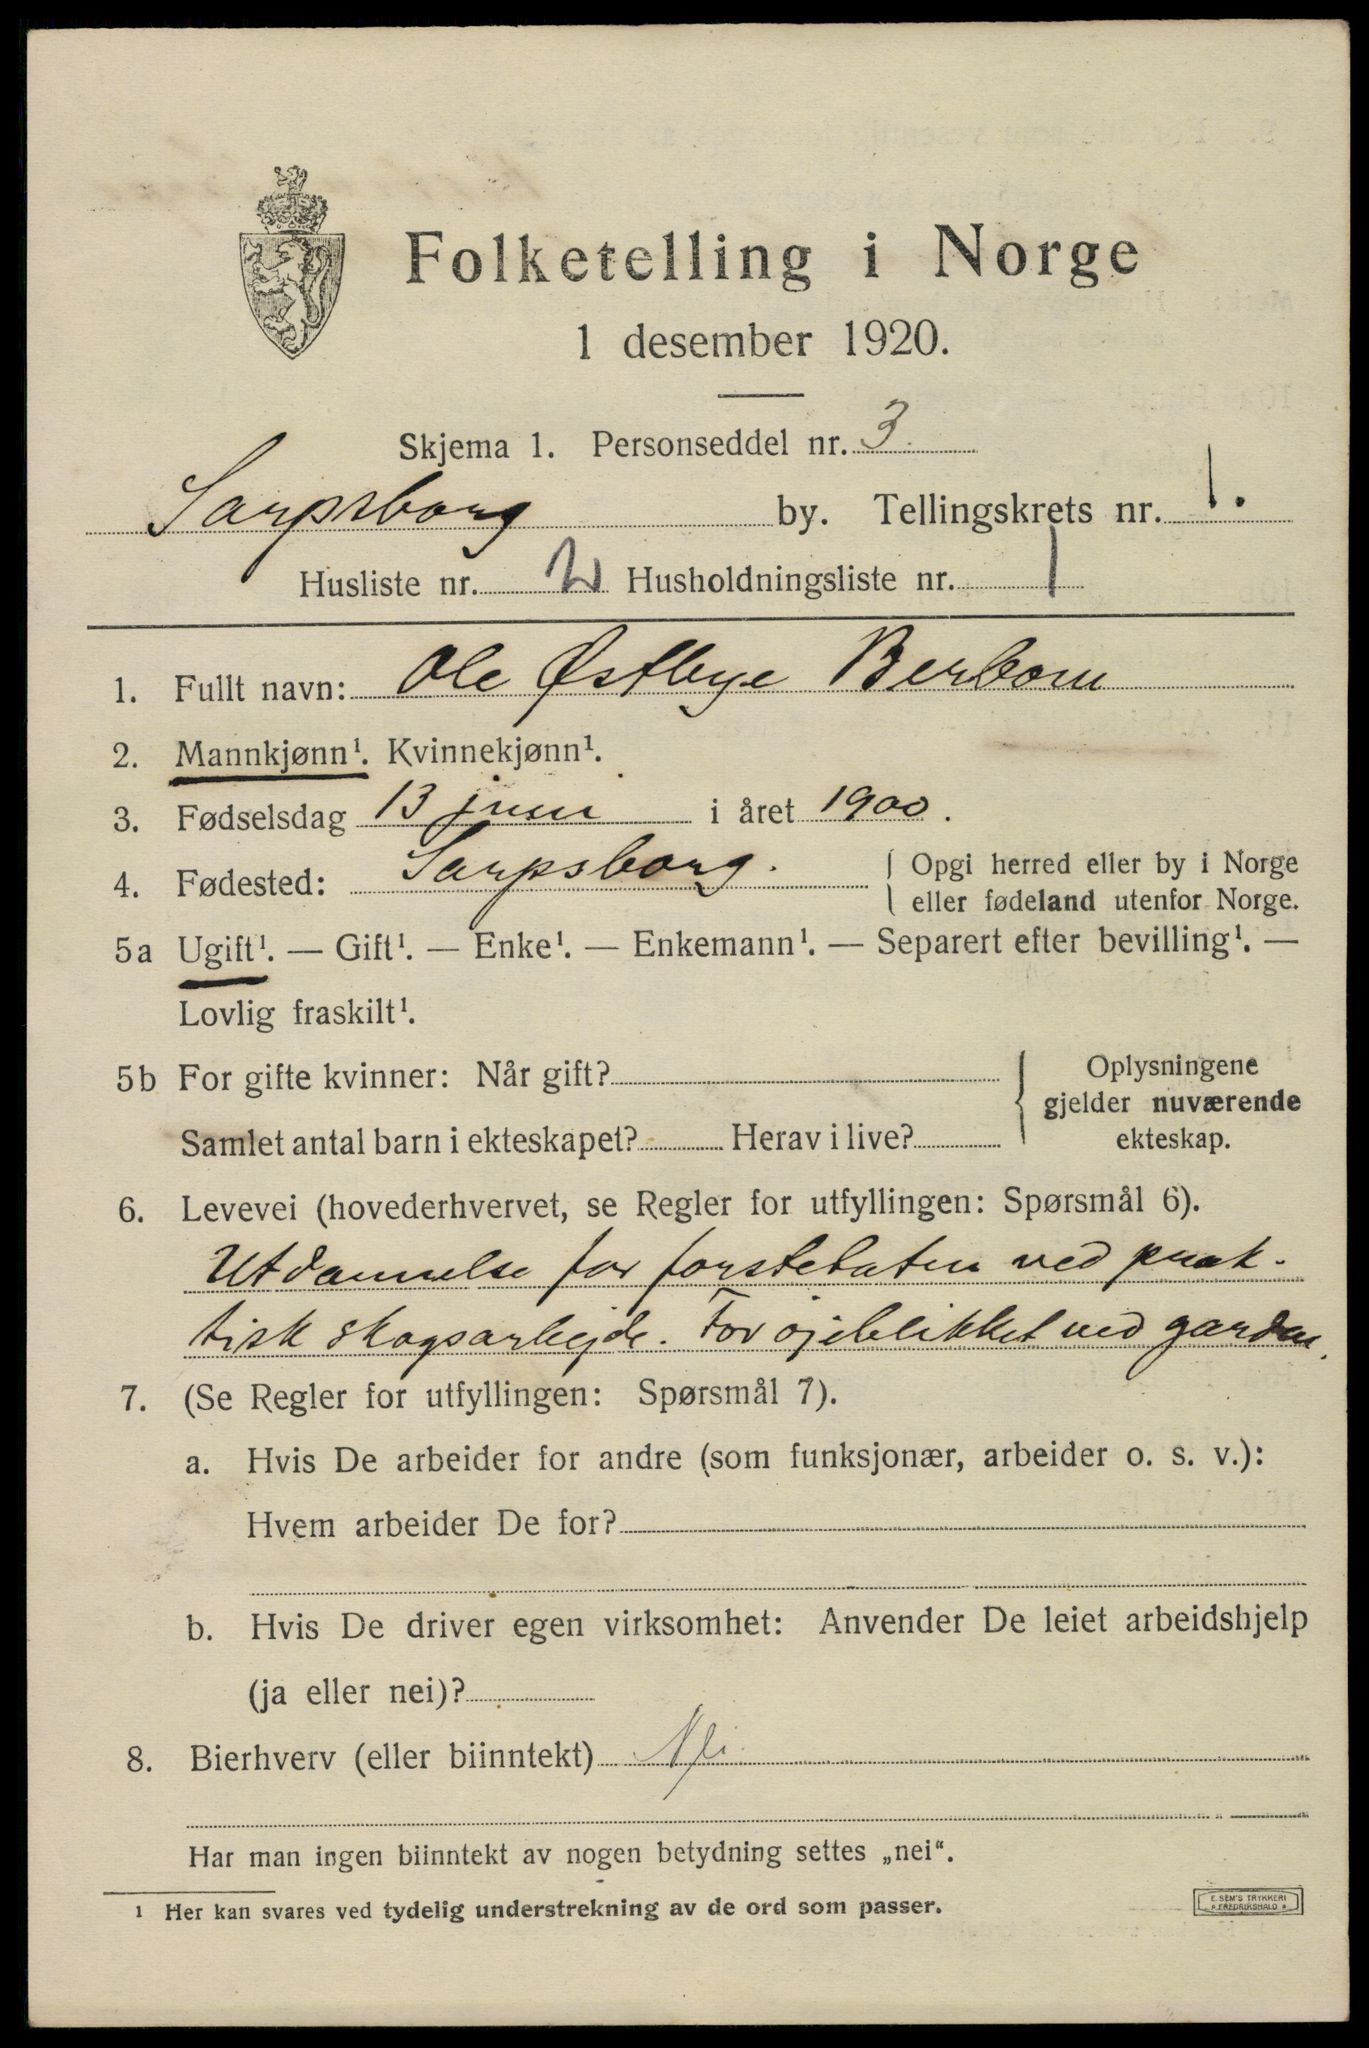 Folketelling i Norge
1 desember 1920.
Skjema 1. Personseddel nr. 3.
Sarpsborg by. Tellingskrets nr. 1.
Husliste nr. 2 Husholdningsliste nr. 1
1. Fullt navn: Ole Østbye Berbom
2. Mannkjønn¹. Kvinnekjønn¹.
3. Fødselsdag 13 juni i året 1900.
4. Fødested: Sarpsborg. { Opgi herred eller by i Norge
eller fødeland utenfor Norge.
5a Ugift¹. — Gift¹. — Enke¹. — Enkemann¹. — Separert efter bevilling¹. —
Lovlig fraskilt¹.
5b For gifte kvinner: Når gift? { Oplysningene
gjelder nuværende
Samlet antal barn i ekteskapet? Herav i live? ekteskap.
6. Levevei (hovederhvervet, se Regler for utfyllingen: Spørsmål 6).
Utdannelse for forstetaten ved prak-
tisk skogsarbejde. For øjeblikket ved garden.
7. (Se Regler for utfyllingen: Spørsmål 7).
a. Hvis De arbeider for andre (som funksjonær, arbeider o. s. v.):
Hvem arbeider De for?
b. Hvis De driver egen virksomhet: Anvender De leiet arbeidshjelp
(ja eller nei)?
8. Bierhverv (eller biinntekt) Nei
Har man ingen biinntekt av nogen betydning settes „nei“.
¹ Her kan svares ved tydelig understrekning av de ord som passer.
E. SEM'S TRYKKERI
FREDRIKSHALD